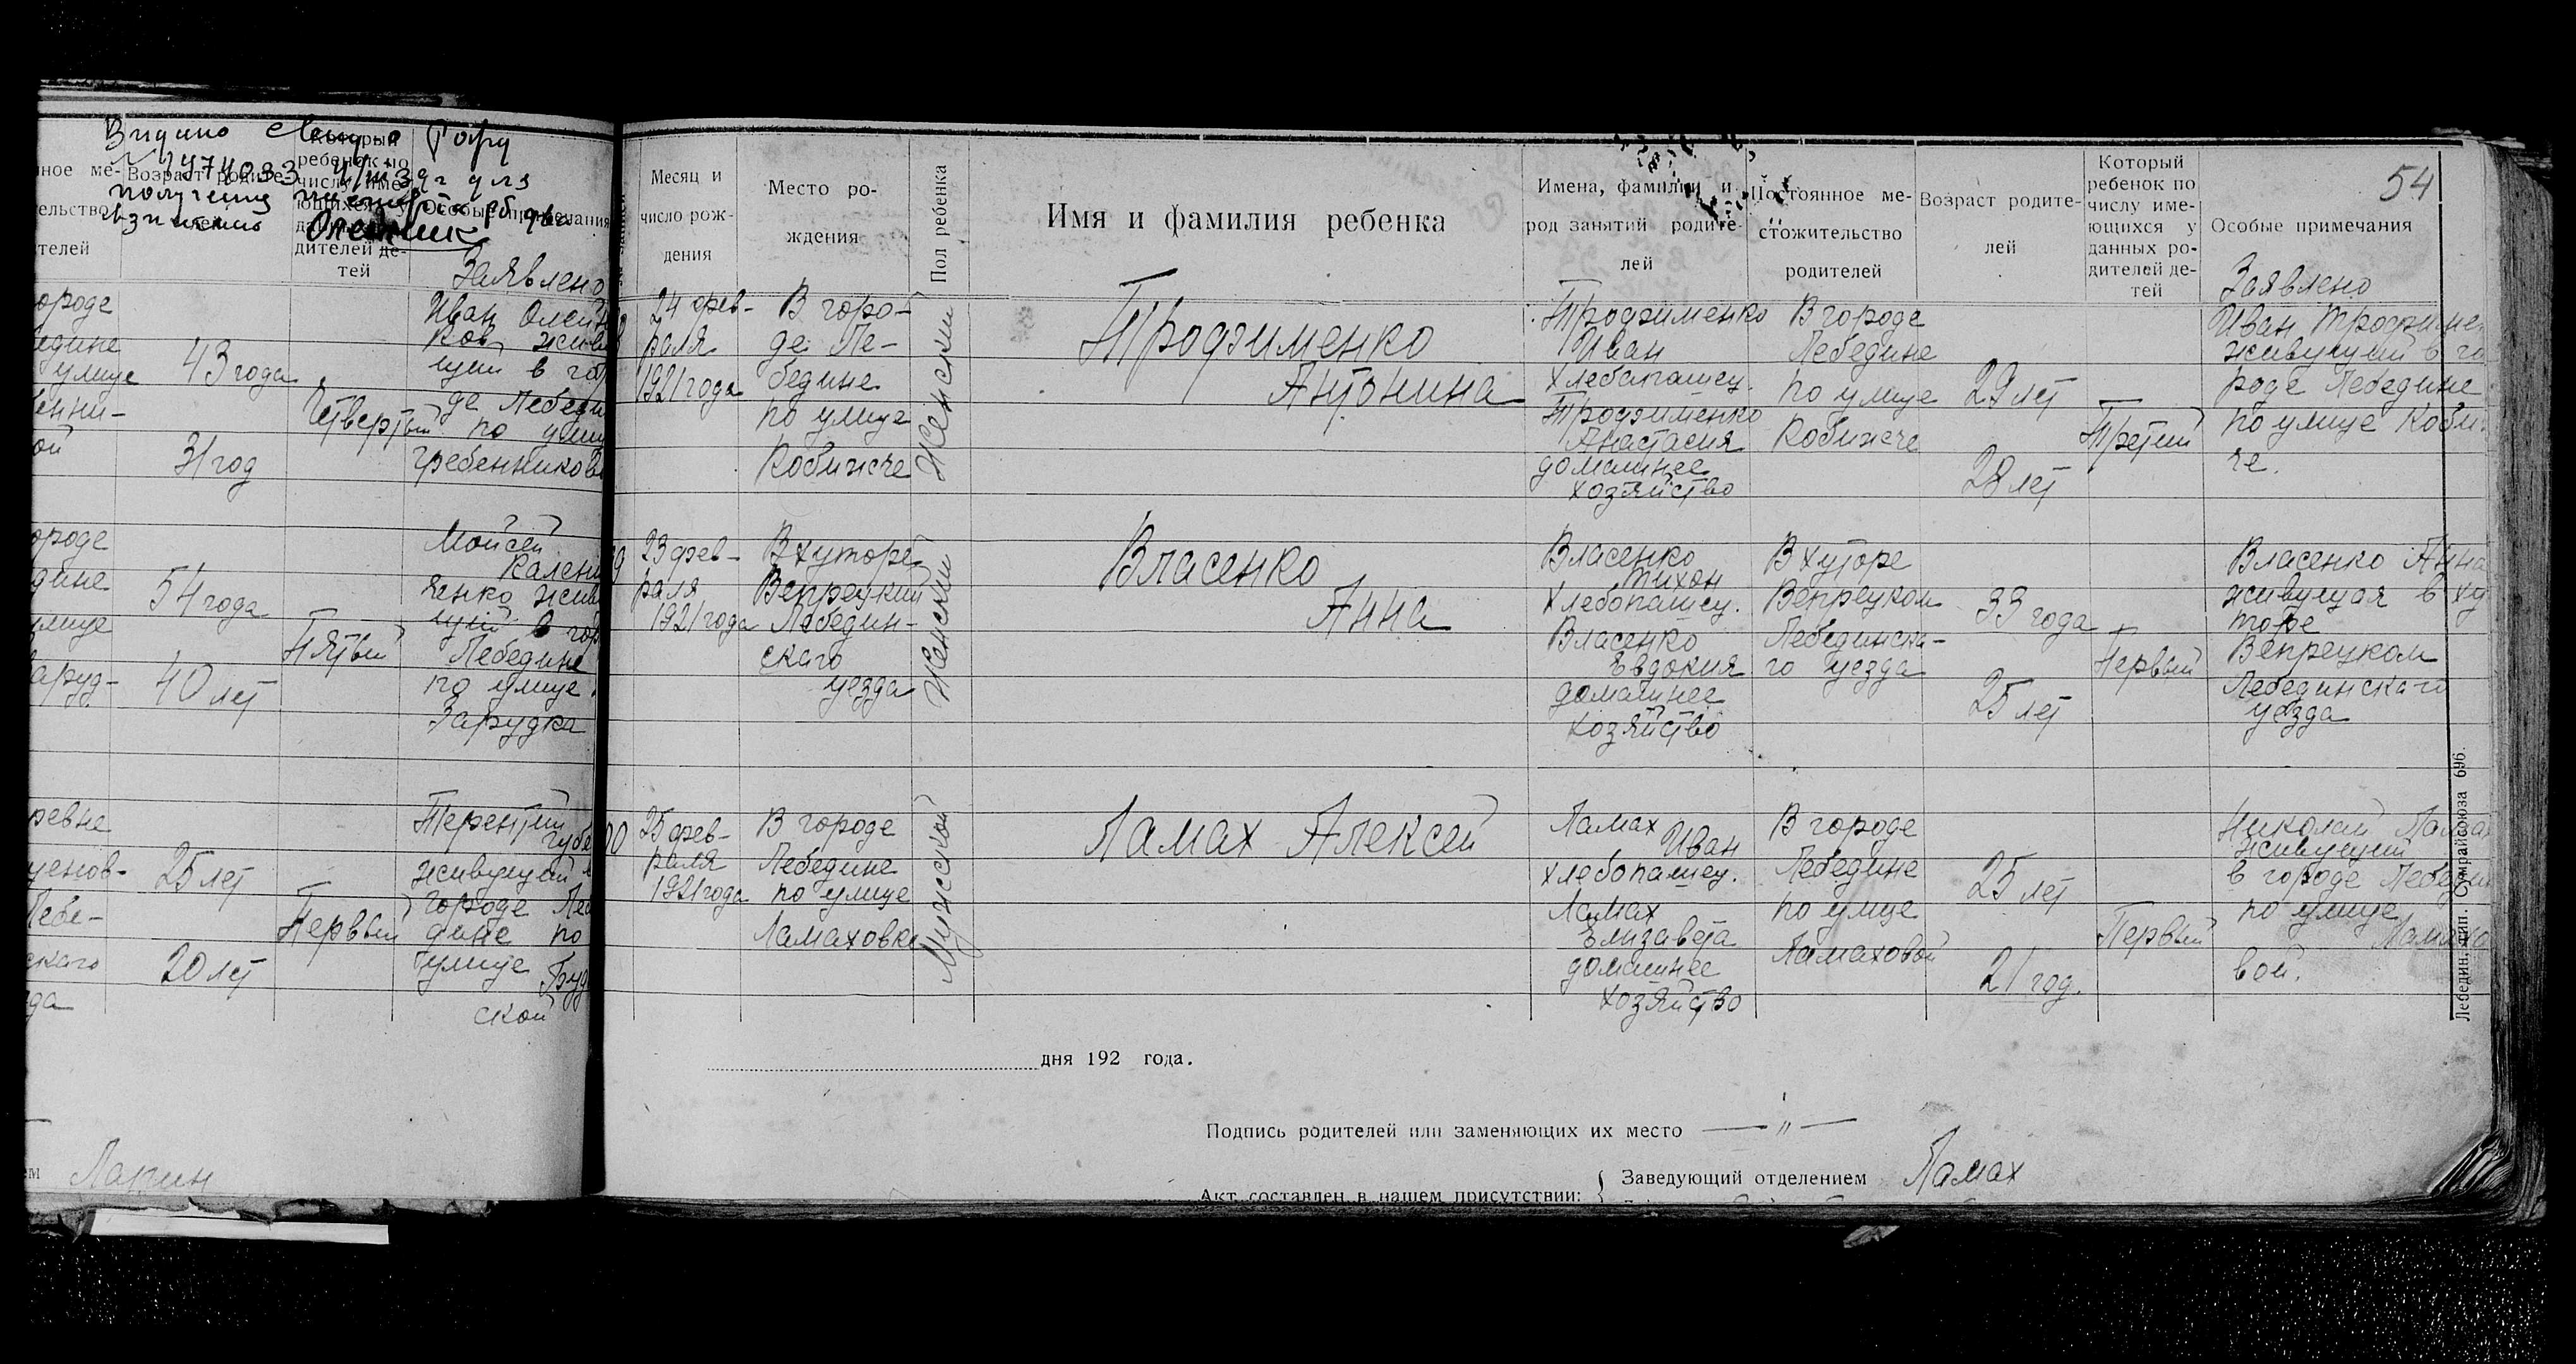 ное ме-
Возраст родите-
Который
ребенок по
числу име-
ющихся у
дителей де-
тей
Особые примечания
тельство
телей
Заявлено
ороде
едине
улице
енни-
ой
43 года
31 год
Четвертый
Иван Олейн
ков живу
щий в горо
де Лебеди
по улиц
Гребенников
ороде
дине
улице
аруд-
54 года
40 лет
Пятый
Мойсей
Калени
ченко живу
щий в гор
Лебедине
по улице
Зарудка
ревне
ценов-
Лебе-
скаго
да
25 лет
20 лет
Первый
Терентий
Губе
живущий в
городе Ле
дине по
улице
Груд
ской
Лапин
54
Месяц и
число рож-
дения
Место ро-
ждения
Пол ребенка
Имя и фамилия ребенка
Имена, фамилии и
род занятий родите-
лей
Постоянное ме-
стожительство
родителей
Возраст родите-
лей
Который
ребенок по
числу име-
ющихся у
данных ро-
дителей де-
тей
Особые примечания
Заявлено
24 фев-
раля
1921 года
В горо-
де Ле-
бедине
по улице
Кобижче
Женский
Трофименко
Антонина
Трофименко
Иван
хлебопашец.
Трофименко
Анастасия
домашнее
хозяйство
В городе
Лебедине
по улице
Кобижче
29 лет
28 лет
Третий
Иван Трофимен
живущий в го
роде Лебедине
по улице Коби
че.
23 фев-
раля
1921 года
В хуторе
Вепрецкий
Лебедин-
скаго
уезда
Женский
Власенко
Анна
Власенко
Тихон
хлебопашец.
Власенко
Евдокия
домашнее
хозяйство
В хуторе
Вепрецком
Лебединска-
го уезда
33 года
25 лет
Первый
Власенко Анна
живущая в ху
торе
Вепрецком
Лебединскаго
уезда
00
25 фев-
раля
1921 года
В городе
Лебедине
по улице
Ламаховке
Мужской
Ламах Алексей
Ламах
Иван
хлебопашец.
Ламах
Елизавета
домашнее
хозяйство
В городе
Лебедине
по улице
Ламаховой
25 лет
21 год.
Первый
Николай Лама
живущий
в городе Лебеди
по улице
Ламахо
вой.
Лебедин. тип. Сумрайсоюза 696.
дня 192 года.
Подпись родителей или заменяющих их место — „ —
Акт составлен в нашем присутствии:
Заведующий отделением Ламах